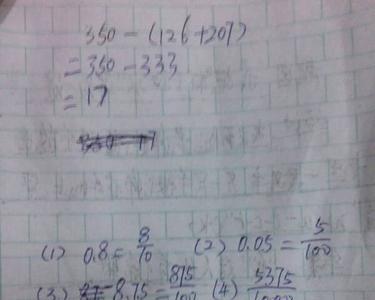 350-(126+207)
=350-333
=17
(1) 0.8=8/10 (2) 0.05=5/100
(3) 8.75=875/100 (4) 5375/1000